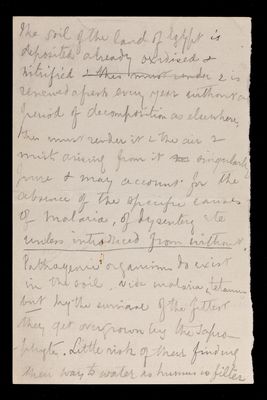 The soil of the land of Egypt is
deposited already oxidised &
nitrified & thus must render & is
renewed afresh every year without a
period of decomposition as elsewhere.
this must render it & the air &
mist arising from it singularly
pure & may account for the
absence of the specific causes
of malaria, of dysentery etc
unless introduced from without.
Pathogenic organisms do exist
in the soil, vide malaria, tetanus
but by the survival of the fittest
they get overgrown by the Sapro-
phyte. Little risk of their finding
their way to water as humus is filter